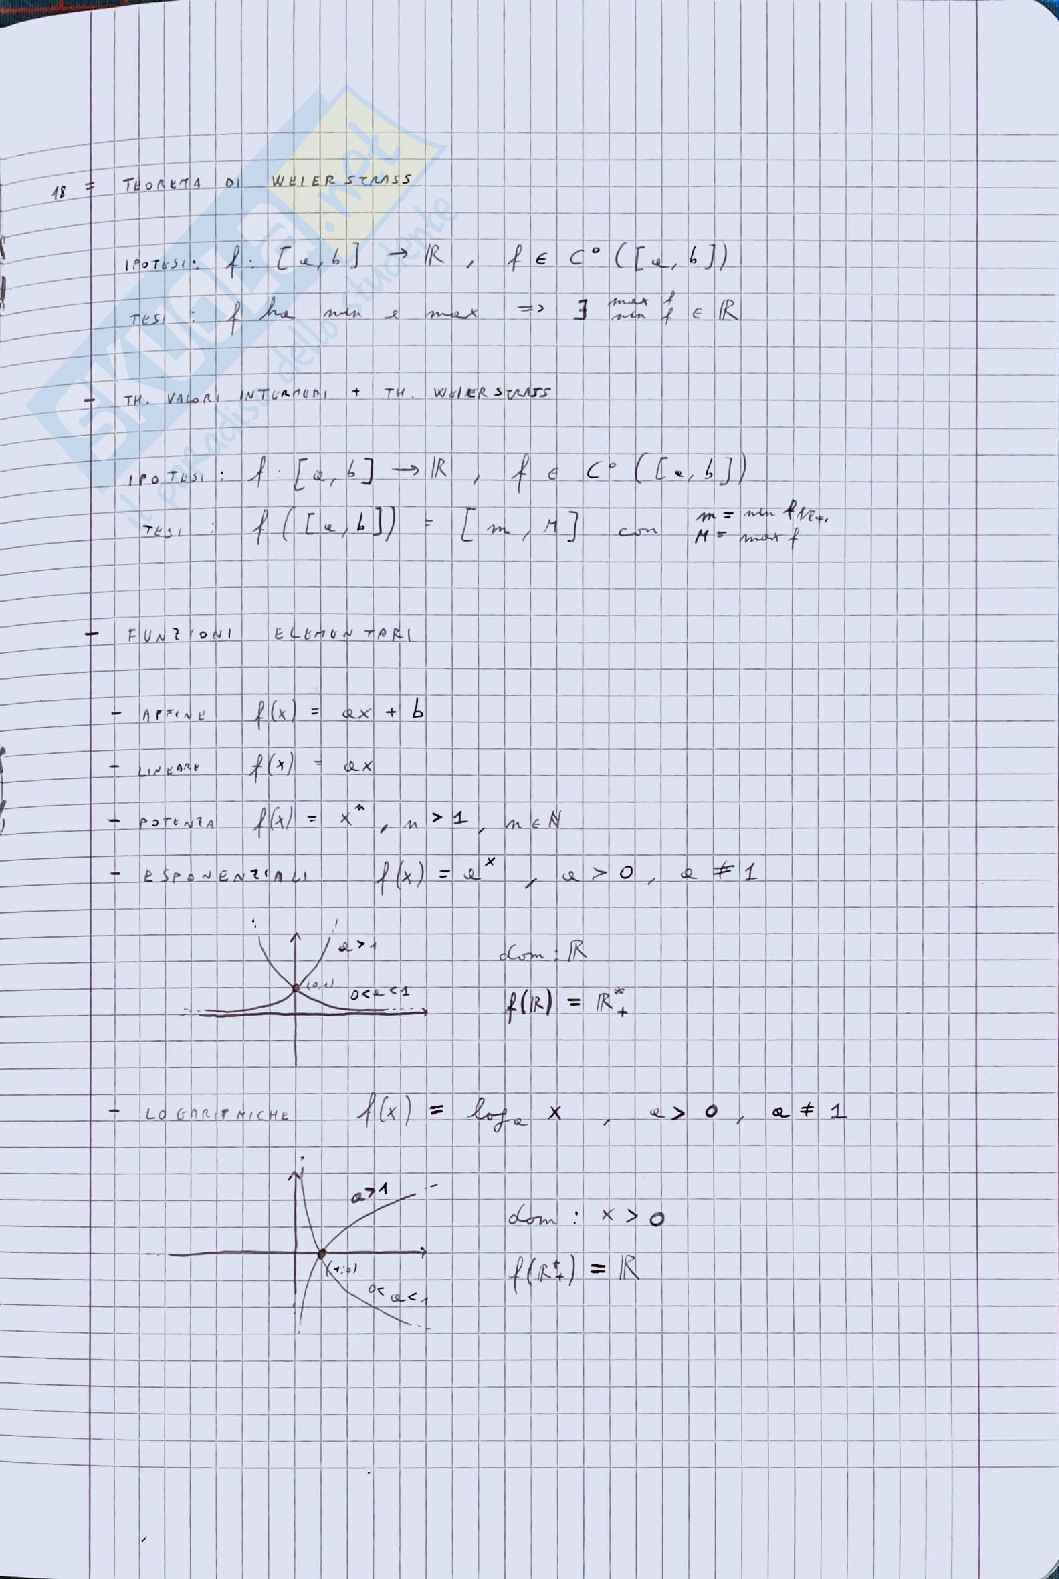 18 = TEOREMA DI WEIERSTRASS
IPOTESI: f: [a,b] → ℝ , f ∈ C° ([a,b])
TESI : f ha min e max => ∃ max f min f ∈ ℝ
- TH. VALORI INTERMEDI + TH. WEIERSTRASS
IPOTESI: f: [a,b] → ℝ , f ∈ C° ([a,b])
TESI : f([a,b]) = [m,M] con m = min f
M = max f
- FUNZIONI ELEMENTARI
- AFFINE f(x) = ax + b
- LINEARE f(x) = ax
- POTENZA f(x) = xⁿ , n > 1 , n ∈ ℕ
- ESPONENZIALI f(x) = aˣ , a > 0 , a ≠ 1
a>1
0<a<1
dom: ℝ
f(ℝ) = ℝ*₊
- LOGARITMICHE f(x) = logₐ x , a > 0 , a ≠ 1
a>1
(1;0)
0<a<1
dom : x > 0
f(ℝ*₊) = ℝ
SKUOLA.net
il paradiso dello studente